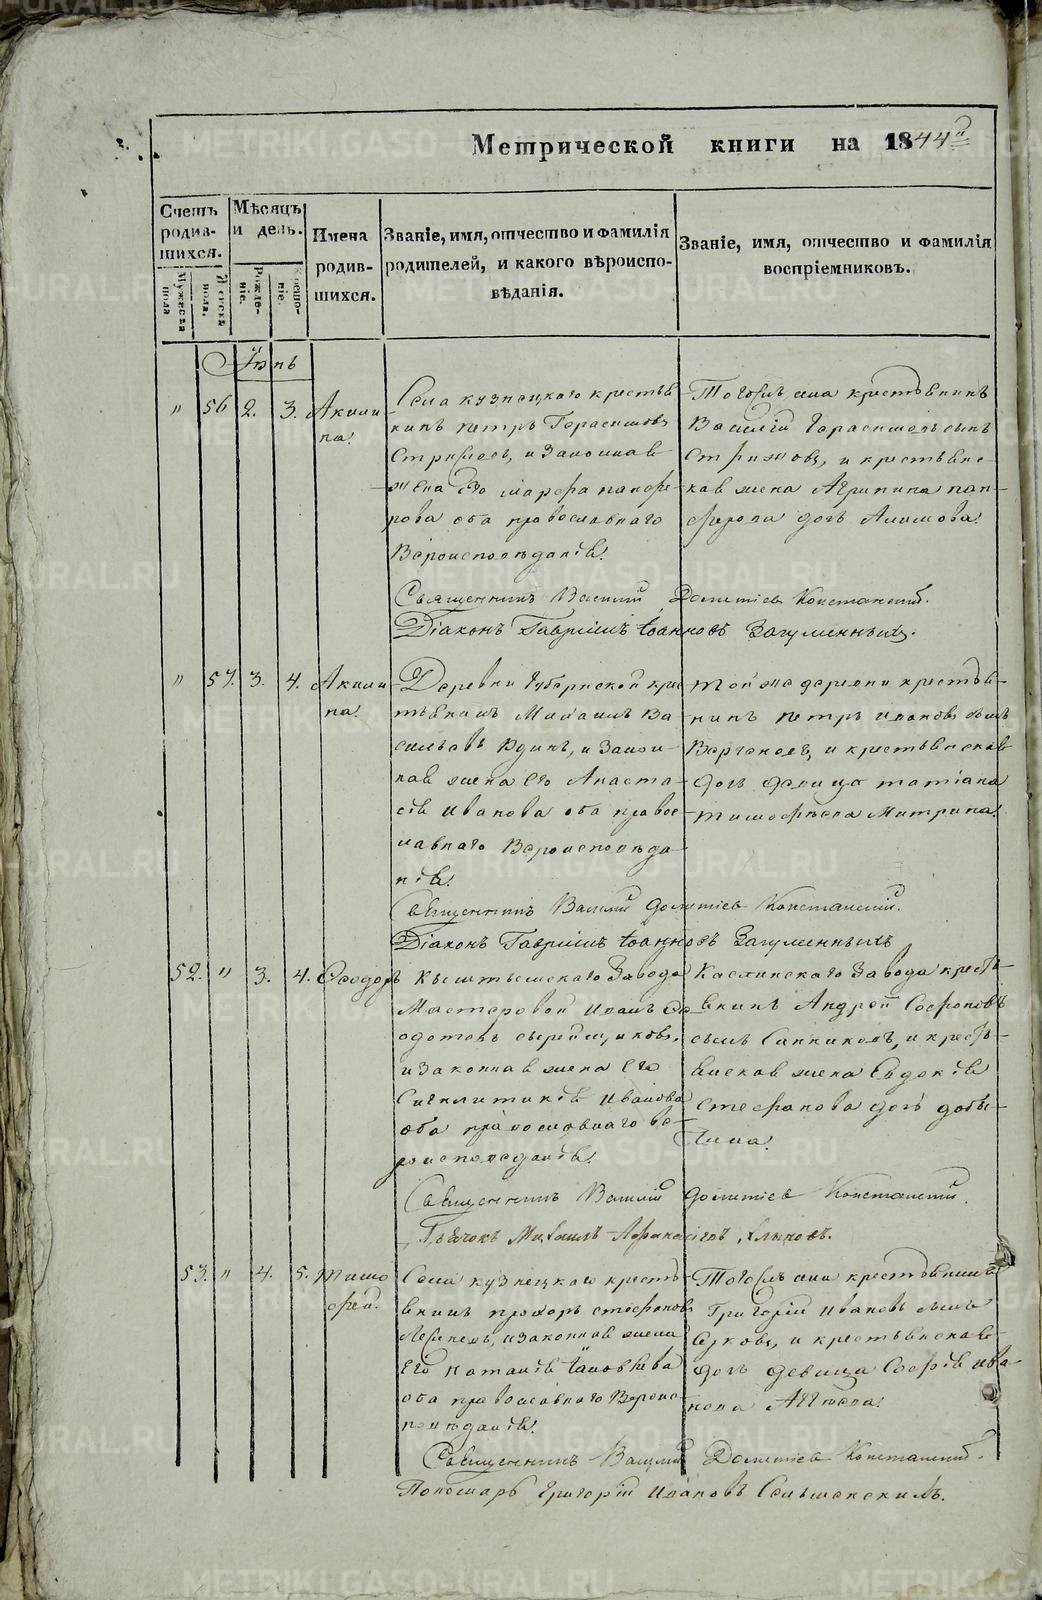 Метрической книги на 1844й
Счетъ родившихся.
Мѣсяцъ и день.
Имена родившихся.
Званіе, имя, отчество и фамилія родителей, и какого вѣроисповѣданія.
Званіе, имя, отчество и фамилія воспріемниковъ.
Мужеска пола
Женска пола.
Рожденіе.
Крещеніе.
Іюнь
" 56 2. 3. Акилина.
Села кузнецкаго крестья
нинъ петръ Герасимовъ
Стрижевъ, и Законная
жена его марфа панфе
рова оба православнаго
Вѣроисповѣданія.
Тогожъ села крестьянинъ
Василій Герасимовъ сынъ
Стрижовъ, и крестьянс
кая жена Агрипина пан
ферова дочь Акимова.
Священникъ Василій Дометіевъ Константин.
Діаконъ Гавріилъ Іоанновъ Загуменныхъ.
" 57. 3. 4. Акилина.
Деревни Губернской крес
тьянинъ Михаилъ Ва
сильевъ Юдинъ, и Закон
ная жена Его Анаста
сія Иванова оба правос
лавнаго Вѣроисповѣда
нія.
той же деревни крестья
нинъ петръ Ивановъ сынъ
и крестьянская
дочь девица татіана
тимофѣева Митрина.
Священникъ Василій Дометіевъ Константин.
Діаконъ Гавріилъ Іоанновъ Загуменныхъ
52. " 3. 4. Ѳеодоръ
Кыштымскаго Завода
Мастеровой Иванъ Ѳе
одотовъ
и Законная жена Его
Сигклитикія Иванова
оба православнаго вѣ
роисповеданія.
Каслинскаго Завода кресть
янинъ Андрей Софроновъ
сынъ Санниковъ, и кресть
янская жена Евдокія
Стефанова дочь

Священникъ Василій Дометіевъ Константин.
Дьячокъ Михаилъ Афанасіевъ
53. " 4. 5. Тимофей.
Села кузнецкаго кресть
янинъ прохоръ стефановъ
и законная жена
Его Наталія
оба православнаго Вѣроис
поведанія.
Тогожъ села крестьянинъ
Григорій Ивановъ сынъ
и крестьянская
дочь девица Софія ива
нова
Священникъ Василій Дометіевъ Константин.
Пономарь Григорій Ивановъ
METRIKI.GASO-URAL.RU